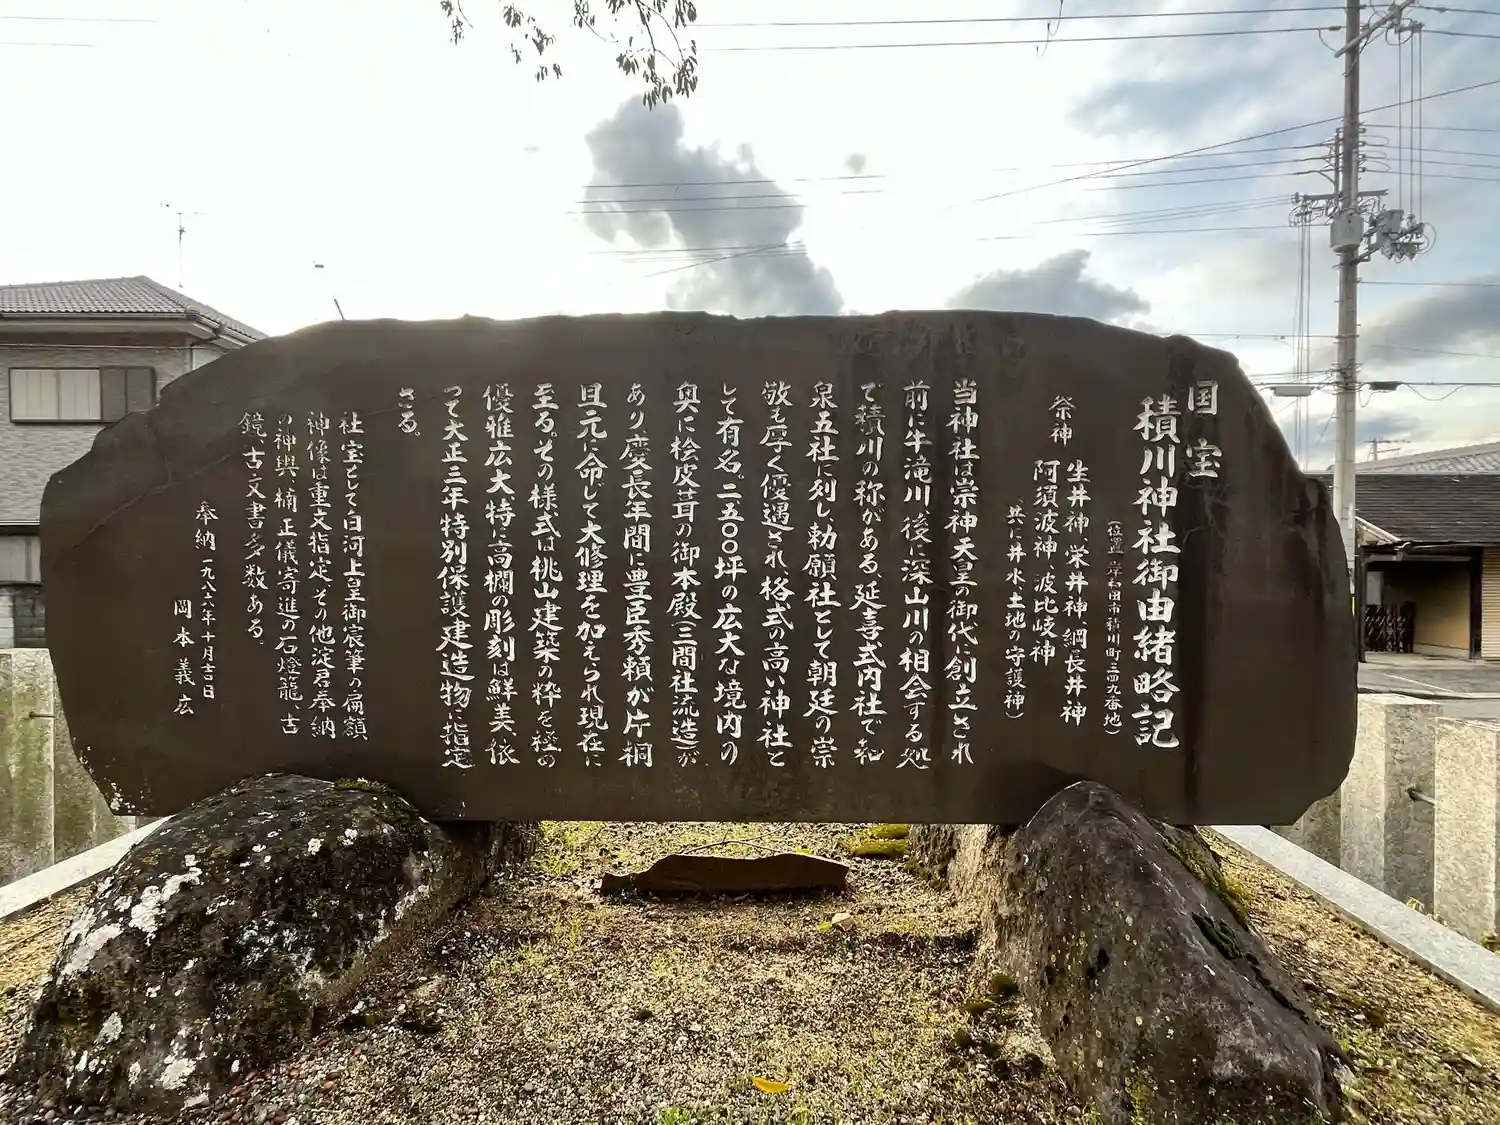 国宝
積川神社御由緒略記
(位置 岸和田市積川町三四九番地)
祭神 生井神、栄井神、綱長井神
阿須波神、波比岐神
(共に井水土地の守護神)
当神社は崇神天皇の御代に創立され
前に牛滝川 後に深山川の相会する処
で積川の称がある、延喜式内社で和
泉五社に列し勅願社として朝廷の崇
敬も厚く優遇され格式の高い神社と
して有名。二五〇〇坪の広大な境内の
奥に桧皮茸の御本殿(三間社流造)が
あり慶長年間に豊臣秀頼が片桐
且元に命じて大修理を加えられ現在に
至る。その様式は桃山建築の粋を極め
優雅広大特に高欄の彫刻は鮮美、依
つて大正三年特別保護建造物に指定
さる。
社宝として白河上皇御宸筆の扁額
神像は重文指定、その他淀君奉納
の神輿、楠正儀寄進の石燈籠、古
鏡、古文書多数ある。
奉納 一九八六年十月吉日
岡本義広